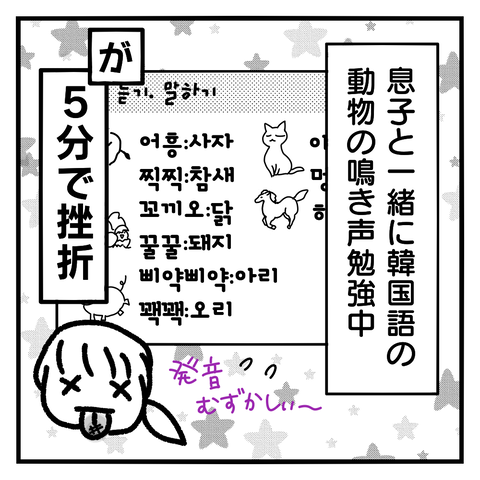 息子と一緒に韓国語の
動物の鳴き声勉強中
が
5分で挫折
듣기. 말하기
어흥:사자
찍찍:참새
꼬끼오:닭
꿀꿀:돼지
삐약삐약:아리
꽥꽥:오리
야
멍
히
発音
むずかしぃ〜